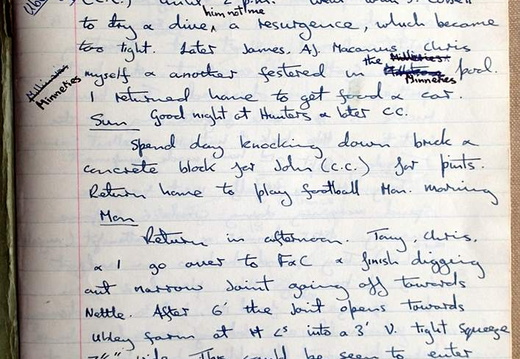 (C.C.) until 2 p.m. Went with J. Cobbett
to try & dive, him not me a resurgence, which became
too tight. Later James, AJ. Macanus, Chris
myself & another festered in the Minneries pool.
Minneries
I returned home to get food & car.
Sun Good night at Hunters & later CC.
Spend day knocking down brick &
concrete block for John (C.C.) for pints.
Return home to play football Mon. morning
Mon
Return in afternoon. Tony, Chris,
& I go over to FxC & finish digging
out narrow joint going off towards
Nettle. After 6' the joint opens towards
Ubley farm at rt ∠s into a 3' V. tight squeeze
7½" wide. This could be seen to enter